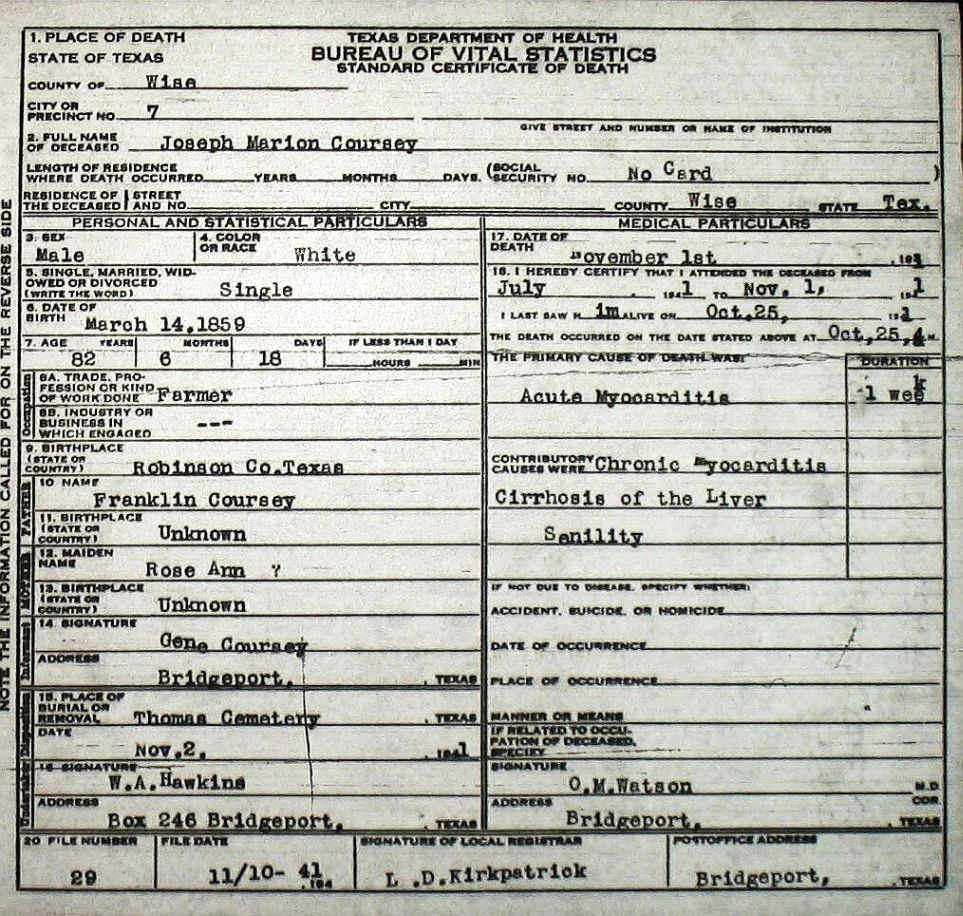 TEXAS DEPARTMENT OF HEALTH
BUREAU OF VITAL STATISTICS
STANDARD CERTIFICATE OF DEATH
1. PLACE OF DEATH
STATE OF TEXAS
COUNTY OF Wise
CITY OR PRECINCT NO. 7
GIVE STREET AND NUMBER OR NAME OF INSTITUTION
2. FULL NAME OF DECEASED Joseph Marion Coursey
LENGTH OF RESIDENCE WHERE DEATH OCCURRED YEARS MONTHS DAYS. (SOCIAL SECURITY NO. No Card )
RESIDENCE OF THE DECEASED STREET AND NO. CITY COUNTY Wise STATE Tex.
PERSONAL AND STATISTICAL PARTICULARS
3. SEX Male
4. COLOR OR RACE White
5. SINGLE, MARRIED, WIDOWED OR DIVORCED (WRITE THE WORD) Single
6. DATE OF BIRTH March 14,1859
7. AGE YEARS MONTHS DAYS IF LESS THAN 1 DAY
82 6 18 HOURS MIN
Occupation
8A. TRADE, PROFESSION OR KIND OF WORK DONE Farmer
8B. INDUSTRY OR BUSINESS IN WHICH ENGAGED ---
9. BIRTHPLACE (STATE OR COUNTRY) Robinson Co.Texas
FATHER
10 NAME Franklin Coursey
11. BIRTHPLACE (STATE OR COUNTRY) Unknown
MOTHER
12. MAIDEN NAME Rose Ann ?
13. BIRTHPLACE (STATE OR COUNTRY) Unknown
Informant
14. SIGNATURE Gene Coursey
ADDRESS Bridgeport, , TEXAS
Undertaker Disposition
15. PLACE OF BURIAL OR REMOVAL Thomas Cemetery , TEXAS
DATE Nov.2, 1941
16 SIGNATURE W.A.Hawkins
ADDRESS Box 246 Bridgeport, , TEXAS
MEDICAL PARTICULARS
17. DATE OF DEATH November 1st , 1941
18. I HEREBY CERTIFY THAT I ATTENDED THE DECEASED FROM
July , 1941 TO Nov. 1, 1941
I LAST SAW H im ALIVE ON Oct.25, 1941
THE DEATH OCCURRED ON THE DATE STATED ABOVE AT Oct,25, M.
THE PRIMARY CAUSE OF DEATH WAS: DURATION
Acute Myocarditis 1 week
CONTRIBUTORY CAUSES WERE Chronic Myocarditis
Cirrhosis of the Liver
Senility
IF NOT DUE TO DISEASE, SPECIFY WHETHER:
ACCIDENT, SUICIDE, OR HOMICIDE
DATE OF OCCURRENCE
PLACE OF OCCURRENCE
MANNER OR MEANS
IF RELATED TO OCCUPATION OF DECEASED, SPECIFY
SIGNATURE O.M.Watson M.D.
COR.
ADDRESS Bridgeport, , TEXAS
20 FILE NUMBER 29
FILE DATE 11/10- 41 , 194
SIGNATURE OF LOCAL REGISTRAR L .D.Kirkpatrick
POSTOFFICE ADDRESS Bridgeport, , TEXAS
NOTE THE INFORMATION CALLED FOR ON THE REVERSE SIDE